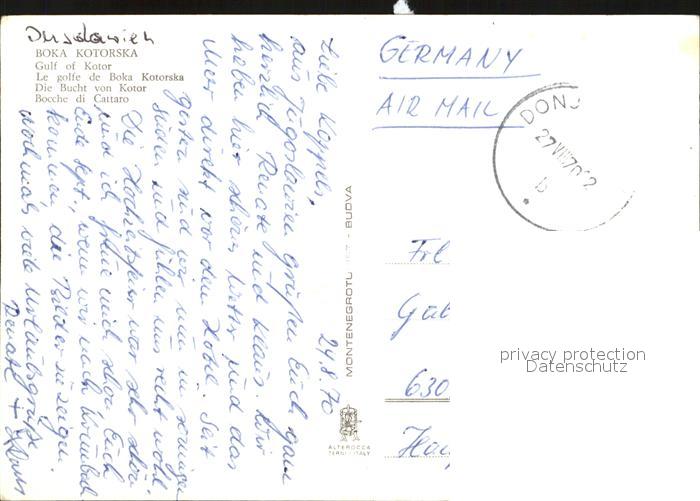 Jugoslawien
BOKA KOTORSKA
Gulf of Kotor
Le golfe de Boka Kotorska
Die Bucht von Kotor
Bocche di Cattaro
24.8.70
Liebe
aus Jugoslawien grüßen Euch ganz
herzlich Renate und Klaus. Wir
haben hier schönes Wetter und das
Meer direkt vor dem Hotel. Seit
gestern sind wir nun im
Süden und fühlen uns recht wohl.
Die Hochzeitsfeier war sehr schön
und ich freue mich schon Euch
Ende Sept., wenn wir nach
kommen die Bilder zu zeigen.
nochmals viele Urlaubsgrüße
Renate + Klaus
MONTENEGROTU - BUDVA
ALTEROCCA
TERNI ITALY
GERMANY
AIR MAIL
DONJ
27 VIII 70
b
Frl
630
privacy protection
Datenschutz